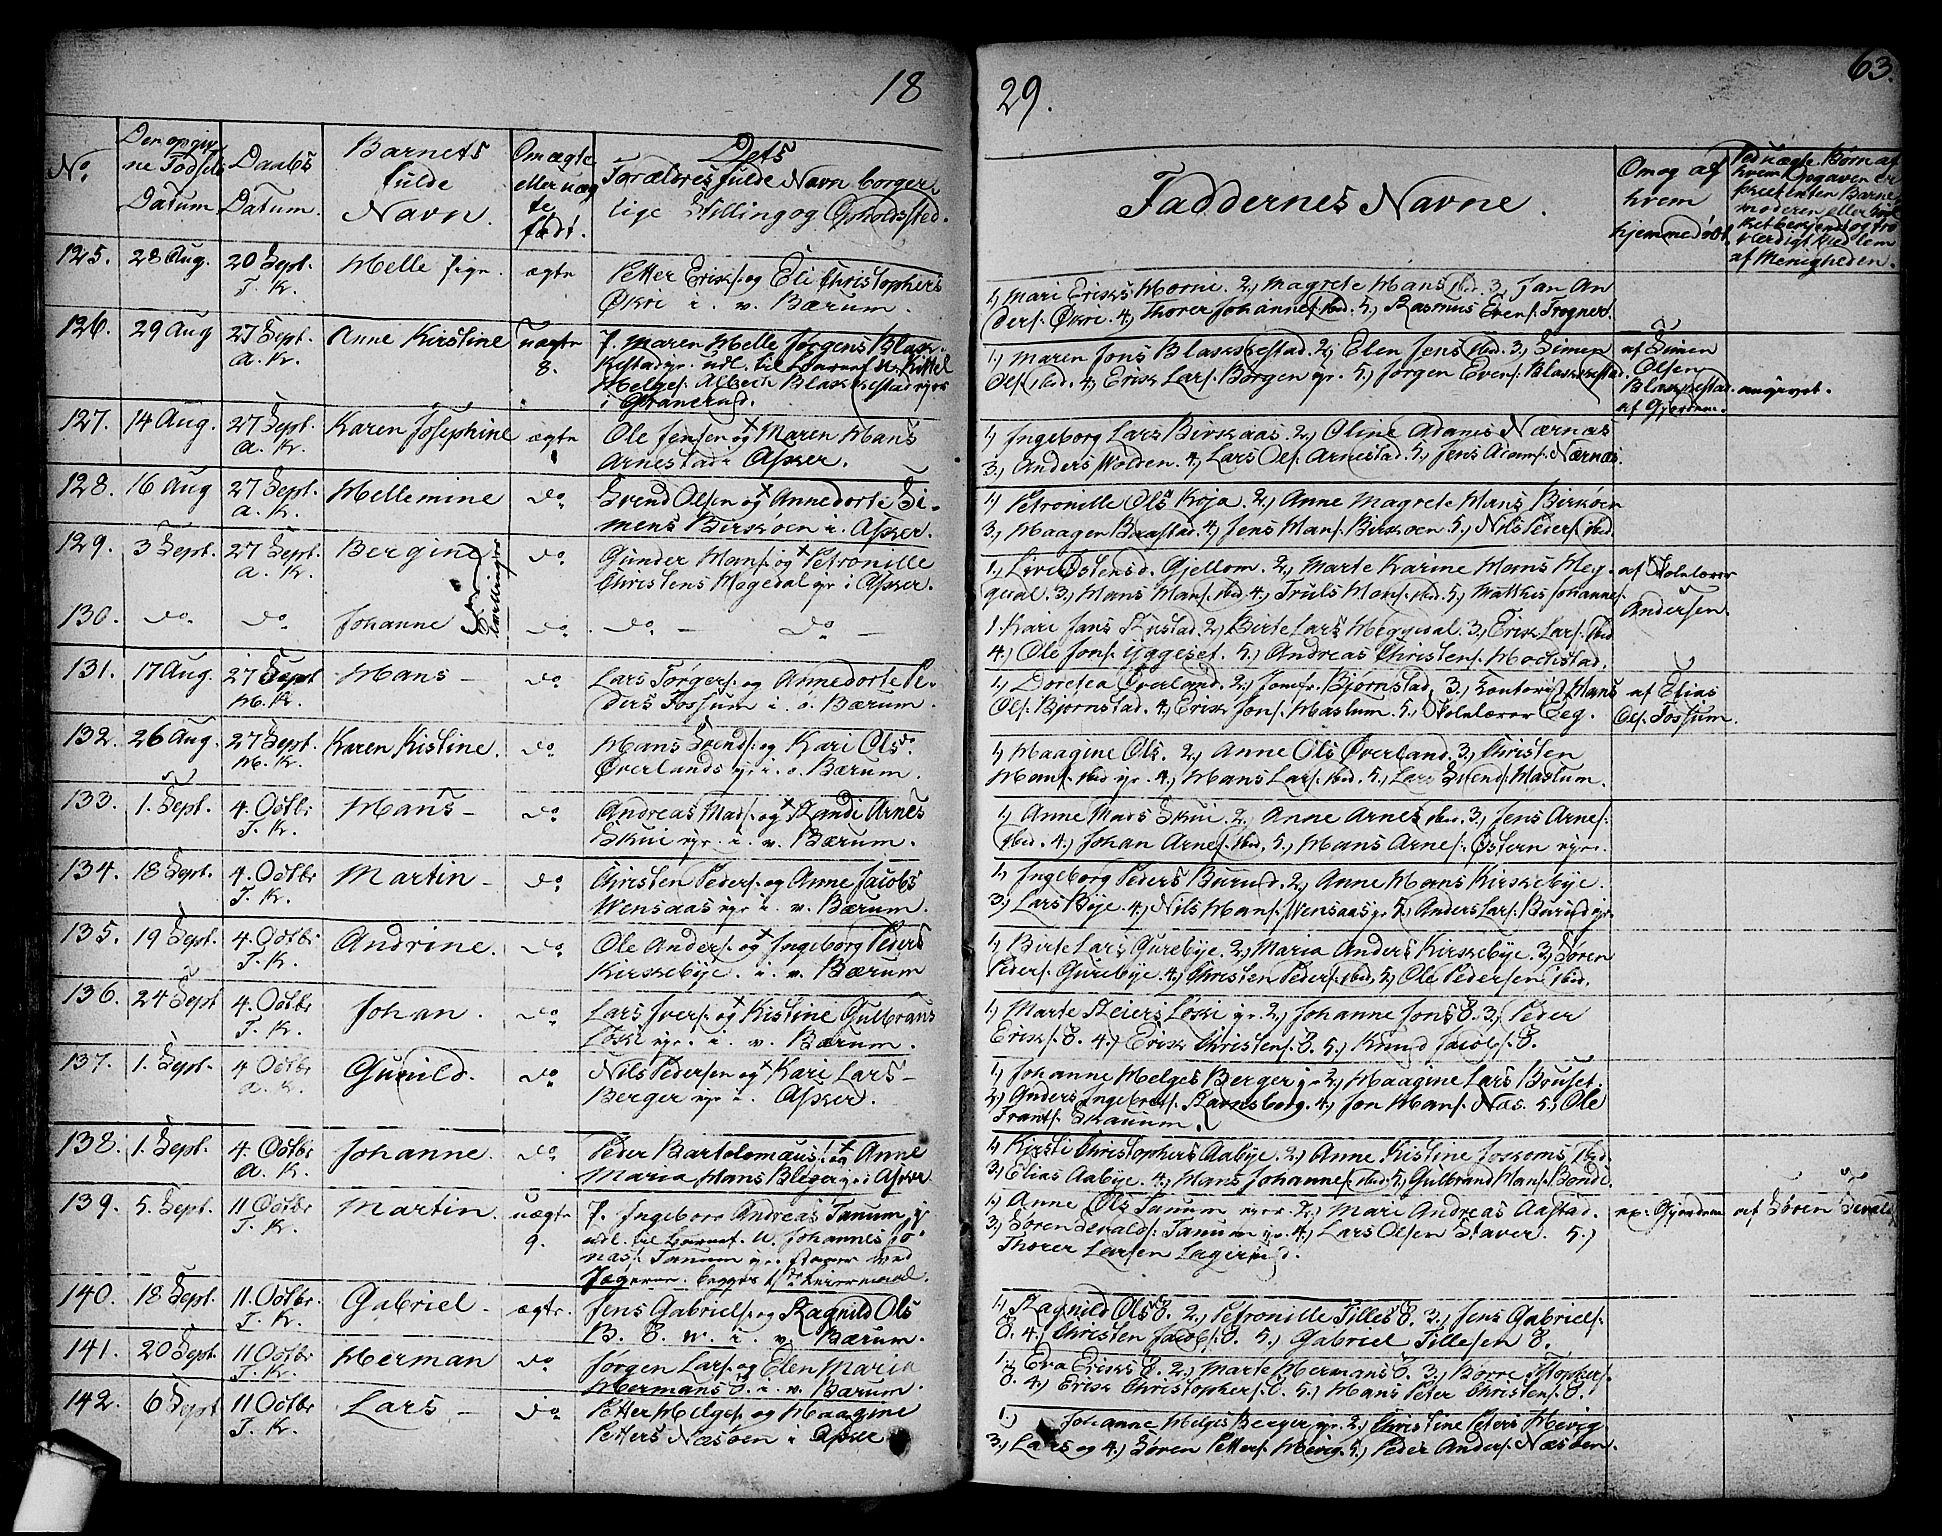 18
No.
Den opgiv
ne Fødsels
Datum
Daabs
Datum.
Barnets
fulde
Navn.
Om ægte
eller uæg
te
født.
Dets
Forældres fulde Navn borger
lige Stilling og Opholdssted.
125. 28 Aug. 20 Sept. Helle Sign. ægte Petter Eriks. og Eli Christophers
T. K. Økri i. v. Bærum.
126. 29 Aug 27 Sept. Anne Kirstine uægte 7. Maren Helle Jørgens Blak
A. K. 8. kestad gr. udl. til Barnef. Kittel
Helges. Blakkestad
i
127. 14 Aug. 27 Sept. Karen Josephine ægte Ole Jensen og Maren Hans
A. K. Arnestad Asker.
128. 16 Aug 27 Sept. Hellemine do. Svend Olsen og Annedorte Si-
A. K. mens Birkøen i. Asker.
129. 3 Sept. 27 Sept. Bergine do. Gunder Hans. og Petronille
A. K. Tvillinger Christens Høgedal gr. i Asker.
130. do. do. Johanne do. do. — do. —
131. 17 Aug. 27 Sept Hans — do. Lars Torgers. og Annedorte Pe-
H. K. ders Fossum i. ø. Bærum.
132. 26 Aug. 27 Sept. Karen Kistine. do. Hans Svends. og Kari Ols
H. K. Øverlands gr. i. ø. Bærum.
133. 1. Sept. 4. Octbr Hans — do. Andreas Mads. og Randi Arnes
T. K. Skui gr. i. v. Bærum.
134. 18 Sept. 4. Octbr Martin — do. Christen Peders. og Anne Jacobs
T. K. Wensaas gr i. v. Bærum.
135. 19 Sept. 4. Octbr Andrine. do. Ole Anders. og Ingeborg Peders
T. K. Kirkebye. i. v. Bærum
136. 24 Sept 4. Octbr Johan. do. Lars Ivers. og Kistine Gulbrans
T. K. Løski gr. i. v. Bærum.
137. 1. Sept. 4 Octbr Gunild. do. Nils Pedersen og Kari Lars —
A. K. Berger gr i. Asker.
138. 1. Sept. 4. Octbr Johanne. do. Peder Bartolomæus. og Anne
A. K. Maria Hans Bleger i Asker
139. 5. Sept. 11 Octbr Martin. uægte 7. Ingeborg Andreas Tanum
T. K. 9. udl. til Barnef. U. Johannes Jo-
nas. Tanum gr.
begges 1ste Leiermaal.
140. 18 Sept. 11. Octbr. Gabriel. ægte. Jens Gabriels. og Ragnild Ols
T. K. B. V. i. v. Bærum.
141. 20 Sept. 11 Octbr Herman do. Jørgen Lars. og Elen Maria
T. K. Hermans i. v. Bærum.
142. 6 Sept 11 Octbr Lars — do. Petter Helges. og Haagine
T. K. Petters Næsøen i Asker
29.
63.
Faddernes Navne.
Om og af
hvem
hjemmedøbt.
Ved uægte Børn af
hvem Opgaven er
skeet enten Barne
moderen eller
bekjendt og tro
værdigt Medlem
af Menigheden.
1.) Mari Eriks Horni. 2.) Magrete Hans ibid. 3.) Jan An
ders. Økri. 4.) Thorer Johannes. ibid. 5.) Rasmus Evens. Trogner.
1.) Maren Jons Blakkestad. 2.) Elen Jens ibid. 3.) Simen
Ols. ibid. 4.) Erik Lars. Borgen gr. 5.) Jørgen Evens. Blakkestad.
af Simen
Olsen
Blakkestad.
af Gjordem.
angivet.
1.) Ingeborg Lars Birkaas. 2.) Oline Adams Nærnæs
3.) Anders Wolden. 4.) Lars Ols. Arnestad. 5.) Jens Adams. Nærnæs.
1.) Petronille Ols Koja. 2.) Anne Magrete Hans Birkøen
3.) Haagen Braastad. 4.) Jens Hans. Birkøen. 5.) Nils Peders. ibid.
1.) Live Østensd. Gjellom. 2.) Marte Karine Hans Heg-
gedal. 3.) Hans Hans. ibid. 4.) Truls Hans. ibid. 5.) Mathis Johannes.
af Skolelærer
Andersen.
1. Kari Jans Rustad. 2.) Birte Lars Heggedal. 3.) Erik Lars. ibid
4.) Ole Jons. Yggeset. 5.) Andreas Christens. Hochstad.
1.) Dortea Øverland. 2.) Jomfr. Bjørnstad. 3.) Kontorist Hans
Ols. Bjørnstad. 4.) Erik Jons. Haslum. 5.) Skolelærer Eeg.
af Elias
Ols. Fossum.
1.) Haagine Ols. 2.) Anne Ols Øverland. 3.) Christen
Hans. ibid gr. 4.) Hans Lars. ibid. 5.) Lars Svends. Haslum.
1.) Anne Mads Skui. 2.) Anne Arnes ibid. 3.) Jens Arnes.
ibid. 4.) Johan Arnes. ibid. 5.) Hans Arnes. Østern gr.
1.) Ingeborg Peders Burud. 2.) Anne Hans Kirkebye.
3.) Lars Bye. 4.) Nils Hans. Wensaas gr 5.) Anders Lars. Burud gr.
1.) Birte Lars Gurebye. 2.) Maria Anders Kirkebye. 3.) Søren
Peders. Gurebye. 4.) Christen Peders. ibid. 5.) Ole Pedersen ibid.
1.) Marte Reiers Løski gr. 2.) Johanne Jons 3.) Peder
Eriks. 4.) Erik Christens. 5.) Knud Jacobs.
1.) Johanne Helges Berger gr 2.) Haagine Lars Bruset.
3.) Anders Ingebrets. Ravnsborg. 4.) Jon Hans. Næs. 5.) Ole
Frants. Skaugum.
1.) Kirsti Christophers Aabye. 2.) Anne Kistine Joakoms ibid.
3.) Elias Aabye. 4.) Hans Johannes. ibid. 5.) Gulbrand Hans. Bondi.
1.) Anne Ols Tanum gr. 2.) Mari Andreas Aastad.
3.) Søren Sevalds. Tanum gr. 4.) Lars Olsen Staver. 5.)
Thorer Larsen Lagerud.
Gjordem af Søren Sevalds
1.) Ragnild Ols 2.) Petronille Tilles 3.) Jens Gabriels.
4.) Christen Jacobs. 5.) Gabriel Tillesen
1.) Eva Eriks 2.) Marte Hermans 3.) Børre Stophers.
4.) Erik Christophers. 5.) Hans Peter Christens.
1.) Johanne Helges Berger gr. 2.) Christine Peters Hevig
3.) Lars og 4.) Søren Petters. Hevig. 5.) Peder Anders. Næsøen.